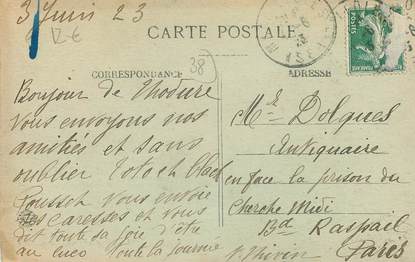 3 Juin 23
12 €
CARTE POSTALE
38
CORRESPONDANCE
ADRESSE
Bonjour de
Vous envoyons nos
amitiés et sans
oublier Toto et
Vous envoie
ses caresses et vous
dit toute sa joie d'être
au toute la journée
Mr Dolques
Antiquaire
en face la prison du
Cherche Midi
Bd Raspail
Paris
POSTES